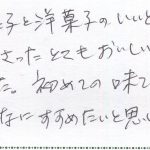 子と洋菓子のいいと
さったとてもおいしい
た。初めての味で
なにすすめたいと思い